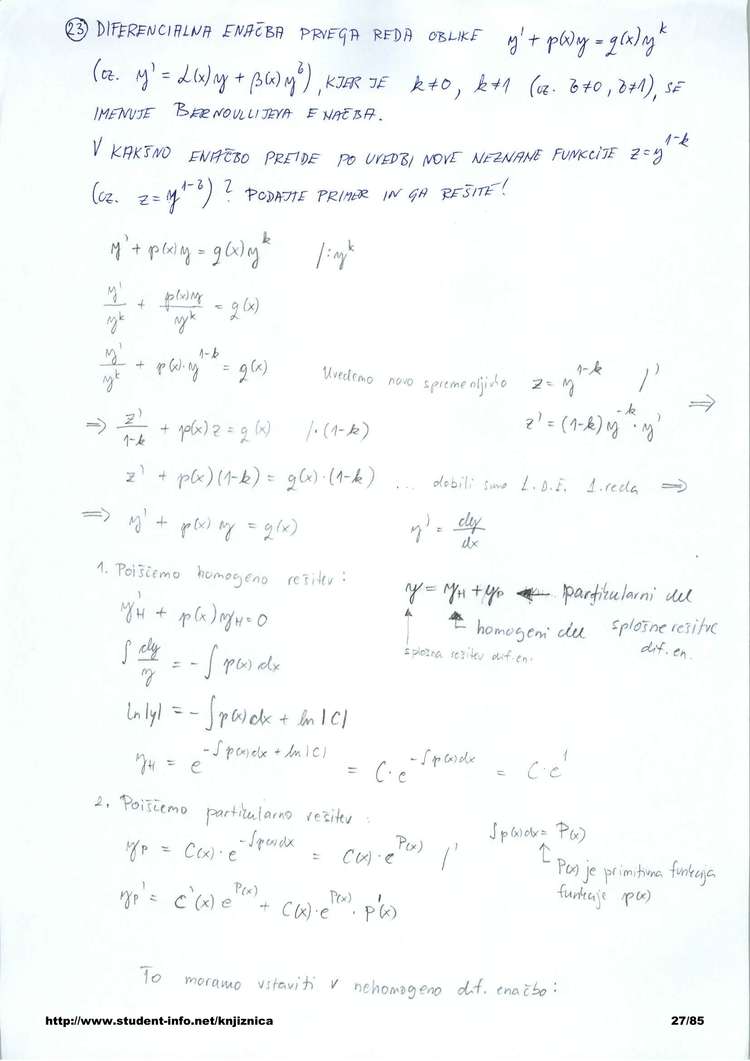 23) DIFERENCIALNA ENAČBA PRVEGA REDA OBLIKE y' + p(x)y = g(x)y^k
(oz. y' = α(x)y + β(x)y^δ), KJER JE k≠0, k≠1 (oz. δ≠0, δ≠1), SE
IMENUJE BERNOULLIJEVA ENAČBA.
V KAKŠNO ENAČBO PREIDE PO UVEDBI NOVE NEZNANE FUNKCIJE z=y^{1-k}
(oz. z=y^{1-δ})? PODAJTE PRIMER IN GA REŠITE!
y' + p(x)y = g(x)y^k /:y^k
y'/y^k + p(x)y/y^k = g(x)
y'/y^k + p(x)·y^{1-k} = g(x) Uvedemo novo spremenljivko z = y^{1-k} /'
z' = (1-k)y^{-k}·y' ⇒
⇒ z'/(1-k) + p(x)z = g(x) /·(1-k)
z' + p(x)(1-k) = g(x)·(1-k) ... dobili smo L.D.E. 1.reda ⇒
⇒ y' + p(x)y = g(x) y' = dy/dx
1. Poiščemo homogeno rešitev:
y = y_H + y_P ← partikularni del
splošne rešitve
dif.en.
homogeni del
splošna rešitev dif.en.
y_H' + p(x)y_H = 0
∫ dy/y = -∫ p(x)dx
ln|y| = -∫p(x)dx + ln|C|
y_H = e^{-∫p(x)dx + ln|C|} = C·e^{-∫p(x)dx} = C·e^1
2. Poiščemo partikularno rešitev:
y_P = C(x)·e^{-∫p(x)dx} = C(x)·e^{P(x)} /'
∫p(x)dx = P(x)
P(x) je primitivna funkcija
funkcije p(x)
y_P' = C'(x)e^{P(x)} + C(x)·e^{P(x)}·P'(x)
To moramo vstaviti v nehomogeno dif. enačbo:
http://www.student-info.net/knjiznica 27/85